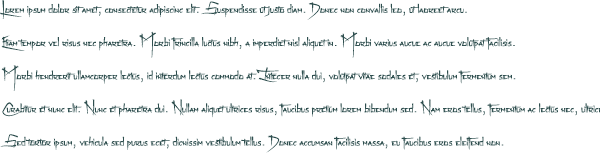 Lorem ipsum dolor sit amet, consectetur adipiscing elit. Suspendisse ut justo diam. Donec non convallis leo, ut laoreet arcu.
Etiam tempor vel risus nec pharetra. Morbi fringilla luctus nibh, a imperdiet nisl aliquet in. Morbi varius augue ac augue volutpat facilisis.
Morbi hendrerit ullamcorper lectus, id interdum lectus commodo at. Integer nulla dui, volutpat vitae sodales et, vestibulum fermentum sem.
Curabitur et nunc elit. Nunc et pharetra dui. Nullam aliquet ultrices risus, faucibus pretium lorem bibendum sed. Nam eros tellus, fermentum ac lectus nec, ultrice
Sed tortor ipsum, vehicula sed purus eget, dignissim vestibulum tellus. Donec accumsan facilisis massa, eu faucibus eros eleifend non.